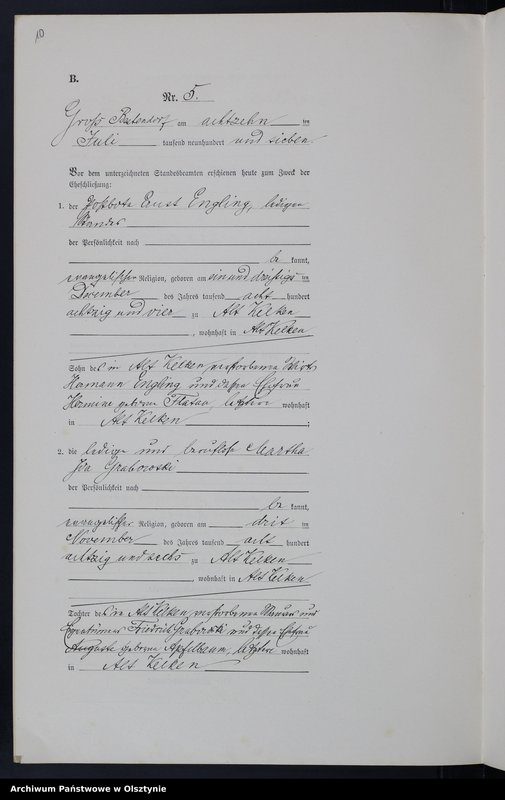 10
B.
Nr. 5.
Groß am achtzehn ten
Juli tausend neunhundert und sieben.
Vor dem unterzeichneten Standesbeamten erschienen heute zum Zweck der
Eheschließung:
1. der Postbote Ernst Engling, ledigen
Standes
der Persönlichkeit nach
be kannt,
evangelischer Religion, geboren am ein und dreißigs ten
Dezember des Jahres tausend acht hundert
achtzig und vier zu Alt Kelken
, wohnhaft in Alt Kelken
Sohn des in Alt Kelken verstorbenen Wirts
Hermann Engling und dessen Ehefrau
Hermine geborene letztere wohnhaft
in Alt Kelken ;
2. die ledige und berufslose Martha
Ida Grabowski
der Persönlichkeit nach
be kannt,
evangelischer Religion, geboren am drit ten
November des Jahres tausend acht hundert
achtzig und sechs zu Alt Kelken
, wohnhaft in Alt Kelken
Tochter des in Alt Kelken verstorbenen und
Eigentümers Friedrich Grabowski und dessen Ehefrau
Auguste geborene Apfelbaum, letztere wohnhaft
in Alt Kelken
Archiwum Państwowe w Olsztynie